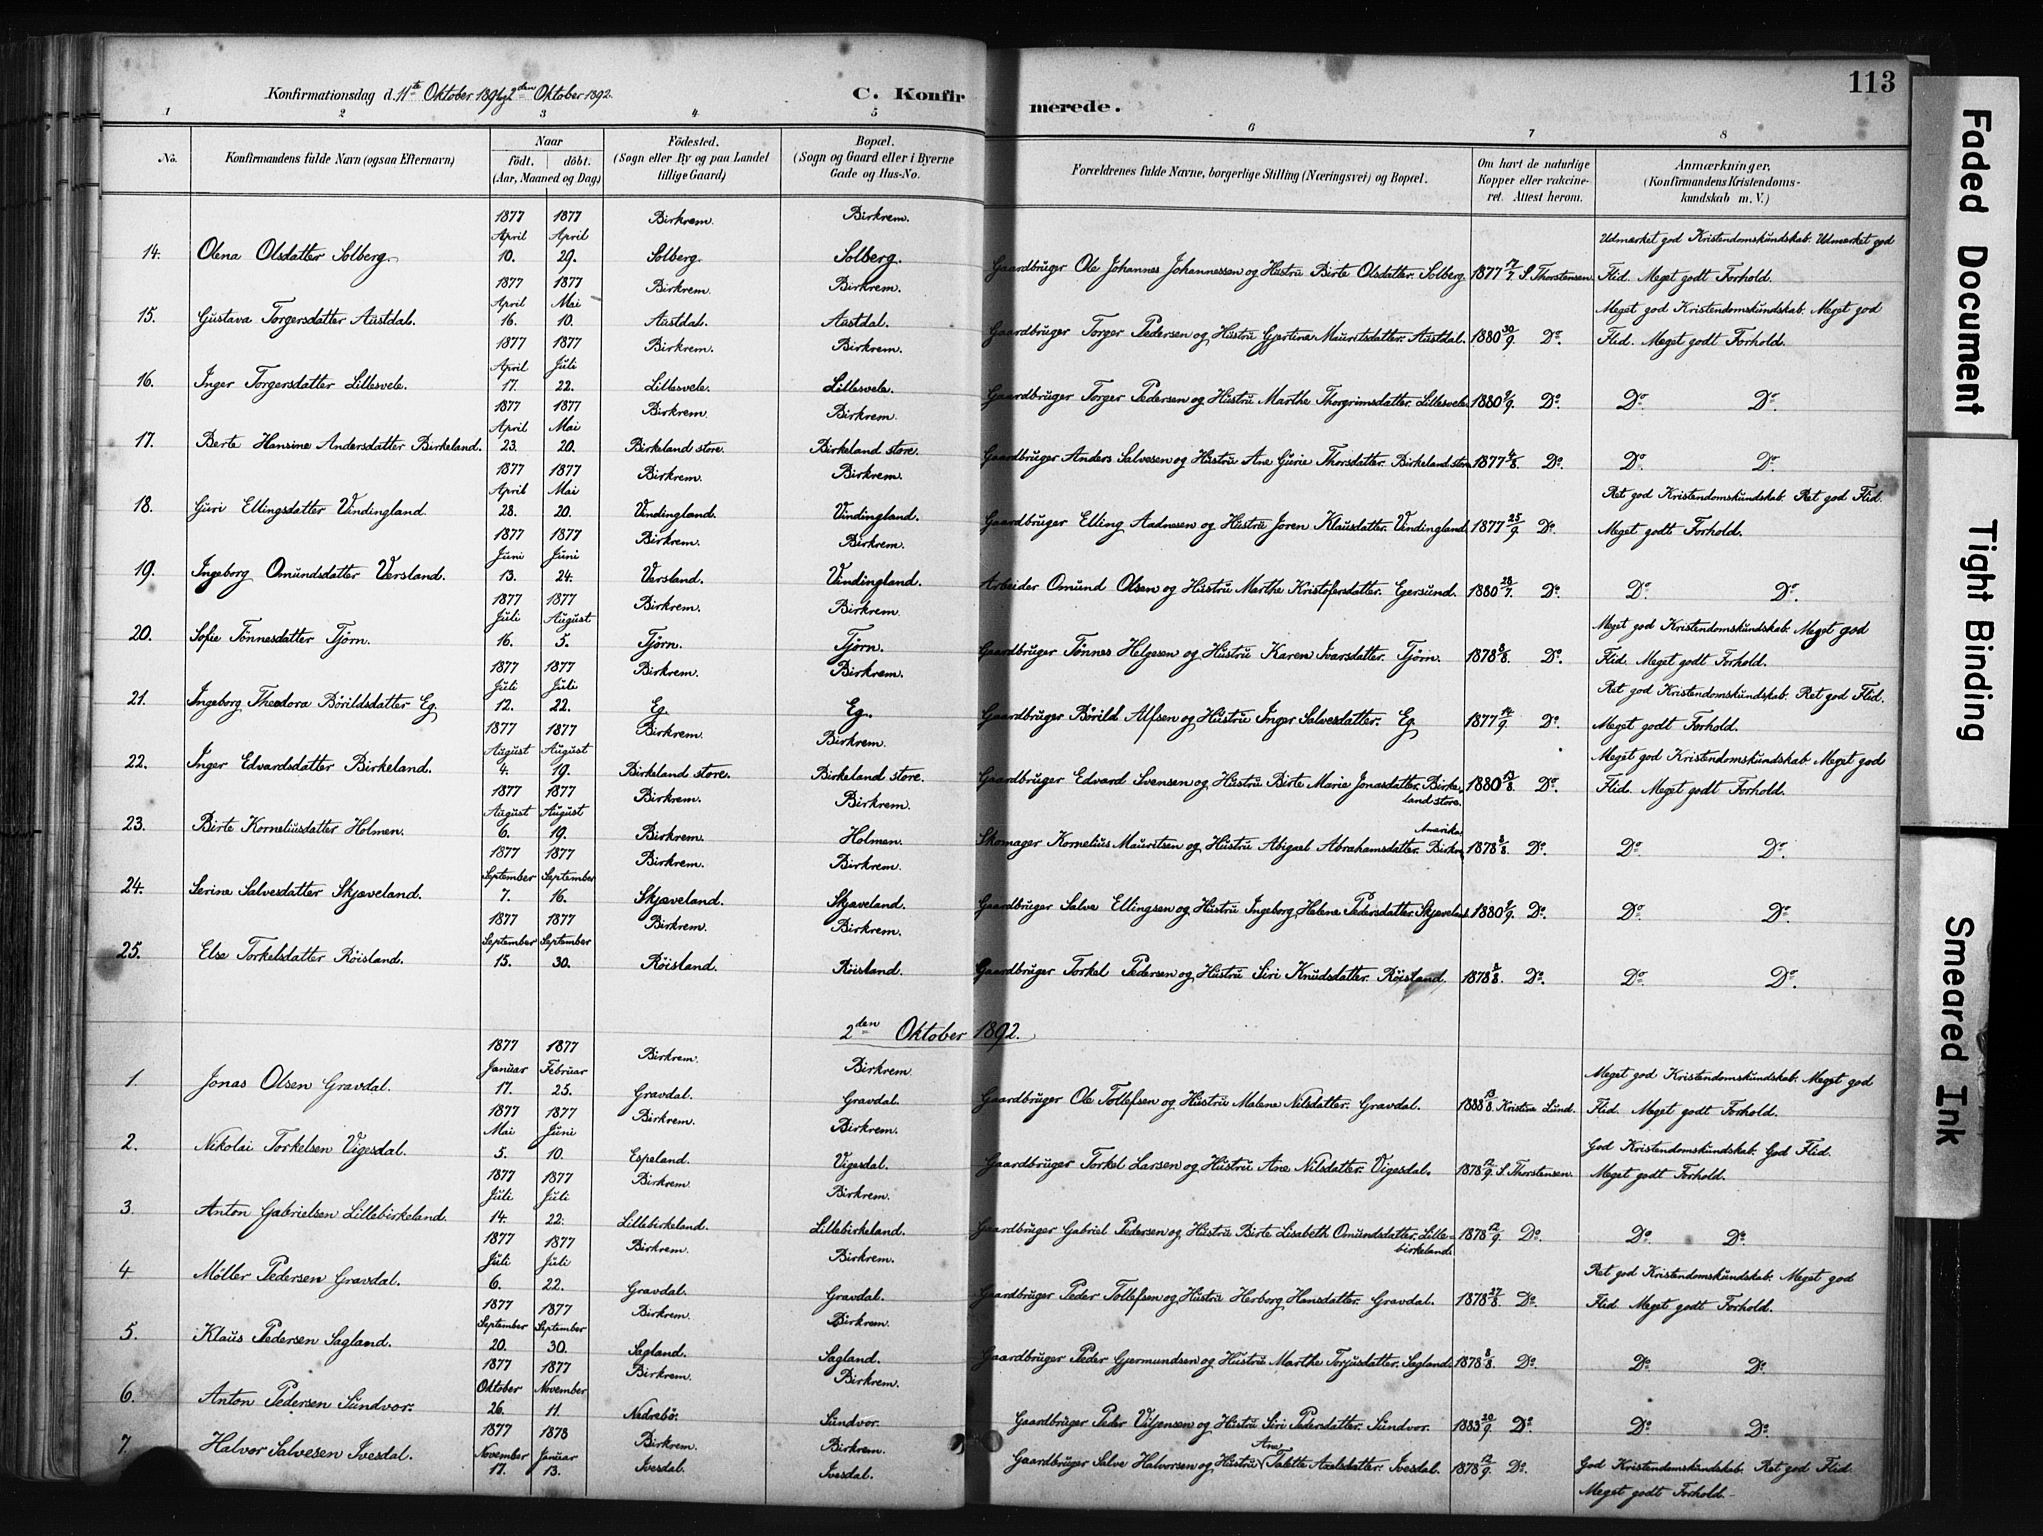 113
Konfirmationsdag d. 11te Oktober 1891 og 2den Oktober 1892.
C. Konfirmerede.
1 2 3 4 5 6 7 8
No. Konfirmandens fulde Navn (ogsaa Efternavn) Naar født. døbt. (Aar, Maaned og Dag) Fødested. (Sogn eller By og paa Landet tillige Gaard) Bopæl. (Sogn og Gaard eller i Byerne Gade og Hus-No. Forældrenes fulde Navne, borgerlige Stilling (Næringsvei) og Bopæl. Om havt de naturlige Kopper eller vakcineret. Attest herom. Anmærkninger, (Konfirmandens Kristendomskundskab m. V.)
1877 April 1877 April Birkrem. Birkrem. Udmærket god Kristendomskundskab. Udmærket god
14. Olena Olsdatter Solberg. 10. 29. Solberg. Solberg. Gaardbruger Ole Johannes Johannessen og Hustru Birte Olsdatter. Solberg. 1877 17/7 S. Thorstensen. Flid. Meget godt Forhold.
1877 April 1877 Mai Birkrem. Birkrem. Meget god Kristendomskundskab. Meget god
15. Gustava Torgersdatter Austdal. 16. 10. Austdal. Austdal. Gaardbruger Torger Pedersen og Hustru Gjertine Mauritsdatter. Austdal. 1880 30/9. Do. Flid. Meget godt Forhold.
1877 April 1877 Juli Birkrem. Birkrem.
16. Inger Torgersdatter Lillesvele. 17. 22. Lillesvele. Lillesvele. Gaardbruger Torger Pedersen og Hustru Marthe Thorgrimsdatter. Lillesvele. 1880 /9. Do. Do. Do.
1877 April 1877 Mai Birkrem. Birkrem.
17. Berte Hansine Andersdatter Birkeland. 23. 20. Birkeland store. Birkeland store. Gaardbruger Anders Salvesen og Hustru Ane Gurie Thorsdatter. Birkeland store 1877 /8. Do. Do. Do.
1877 April 1877 Mai Birkrem. Birkrem. Ret god Kristendomskundskab. Ret god Flid.
18. Guri Ellingsdatter Vindingland. 28. 20. Vindingland. Vindingland. Gaardbruger Elling Aadnesen og Hustru Joren Klausdatter. Vindingland. 1877 25/9. Do. Meget godt Forhold.
1877 Juni 1877 Juni Birkrem. Birkrem.
19. Ingeborg Omundsdatter Versland. 13. 24. Versland. Vindingland. Arbeider Omund Olsen og Hustru Marthe Kristofersdatter. Egersund. 1880 28/7. Do. Do. Do.
1877 Juli 1877 August Birkrem. Birkrem. Meget god Kristendomskundskab. Meget god
20. Sofie Tønnesdatter Tjørn. 16. 5. Tjørn. Tjørn. Gaardbruger Tønnes Helgesen og Hustru Karen Ivarsdatter. Tjørn. 1878 8/8. Do. Flid. Meget godt Forhold.
1877 Juli 1877 Juli Birkrem. Birkrem. Ret god Kristendomskundskab. Ret god Flid.
21. Ingeborg Theodora Børildsdatter Eg. 12. 22. Eg. Eg. Gaardbruger Børild Alfsen og Hustru Inger Salvesdatter. Eg. 1877 14/9. Do. Meget godt Forhold.
1877 August 1877 August Birkrem. Birkrem. Meget god Kristendomskundskab. Meget god
22. Inger Edvardsdatter Birkeland. 4. 19. Birkeland store. Birkeland store. Gaardbruger Edvard Svensen og Hustru Birte Marie Jonasdatter. Birkeland store. 1880 /8. Do. Flid. Meget godt Forhold.
1877 August 1877 August Birkrem. Birkrem.
23. Birte Korneliusdatter Holmen. 6. 19. Birkrem. Holmen. Skomager Kornelius Mauritsen og Hustru Abigael Abrahamsdatter. Amerika. Birkrem 1878 8/8. Do. Do. Do.
1877 September 1877 September Birkrem. Birkrem.
24. Serine Salvesdatter Skjæveland. 7. 16. Skjæveland. Skjæveland. Gaardbruger Salve Ellingsen og Hustru Ingeborg Helene Pedersdatter. Skjæveland. 1880 /9. Do. Do. Do.
1877 September 1877 September Birkrem. Birkrem.
25. Else Torkelsdatter Røisland. 15. 30. Røisland. Røisland. Gaardbruger Torkel Pedersen og Hustru Siri Knudsdatter. Røisland. 1878 8/8. Do. Do. Do.
2den Oktober 1892.
1877 Januar 1877 Februar Birkrem. Birkrem. Meget god Kristendomskundskab. Meget god
1. Jonas Olsen Gravdal. 17. 25. Gravdal. Gravdal. Gaardbruger Ole Tollefsen og Hustru Malene Nilsdatter. Gravdal. 1888 13/8. Kristine Lund. Flid. Meget godt Forhold.
1877 Mai 1877 Juni Birkrem. Birkrem. God Kristendomskundskab. God Flid.
2. Nikolai Torkelsen Vigesdal. 5. 10. Espeland. Vigesdal. Gaardbruger Torkel Larsen og Hustru Ane Nilsdatter. Vigesdal. 1878 12/9. S. Thorstensen. Meget godt Forhold.
1877 Juli 1877 Juli Birkrem. Birkrem.
3. Anton Gabrielsen Lillebirkeland. 14. 22. Lillebirkeland. Lillebirkeland. Gaardbruger Gabriel Pedersen og Hustru Birte Lisabeth Omundsdatter. Lillebirkeland. 1878 12/9. Do. Do. Do.
1877 Juli 1877 Juli Birkrem. Birkrem. Ret god Kristendomskundskab. Meget god
4. Møller Pedersen Gravdal. 6. 22. Gravdal. Gravdal. Gaardbruger Peder Tollefsen og Hustru Herborg Hansdatter. Gravdal. 1878 27/8. Do. Flid. Meget godt Forhold.
1877 September 1877 September Birkrem. Birkrem.
5. Klaus Pedersen Sagland. 20. 30. Sagland. Sagland. Gaardbruger Peder Gjermundsen og Hustru Marthe Torjusdatter. Sagland. 1878 8/8. Do. Do. Do.
1877 Oktober 1877 November Birkrem. Birkrem.
6. Anton Pedersen Sundvor. 26. 11. Nedrebø. Sundvor. Gaardbruger Peder Viljensen og Hustru Siri Pedersdatter. Sundvor. 1883 20/9. Do. Do. Do.
1877 November 1878 Januar Birkrem. Birkrem.
7. Halvor Salvesen Ivesdal. 17. 13. Ivesdal. Ivesdal. Gaardbruger Salve Halvorsen og Hustru Ane Talette Axelsdatter. Ivesdal. 1878 12/9. Do. God Kristendomskundskab. Ret god Flid.
Meget godt Forhold.
Faded Document
Tight Binding
Smeared Ink